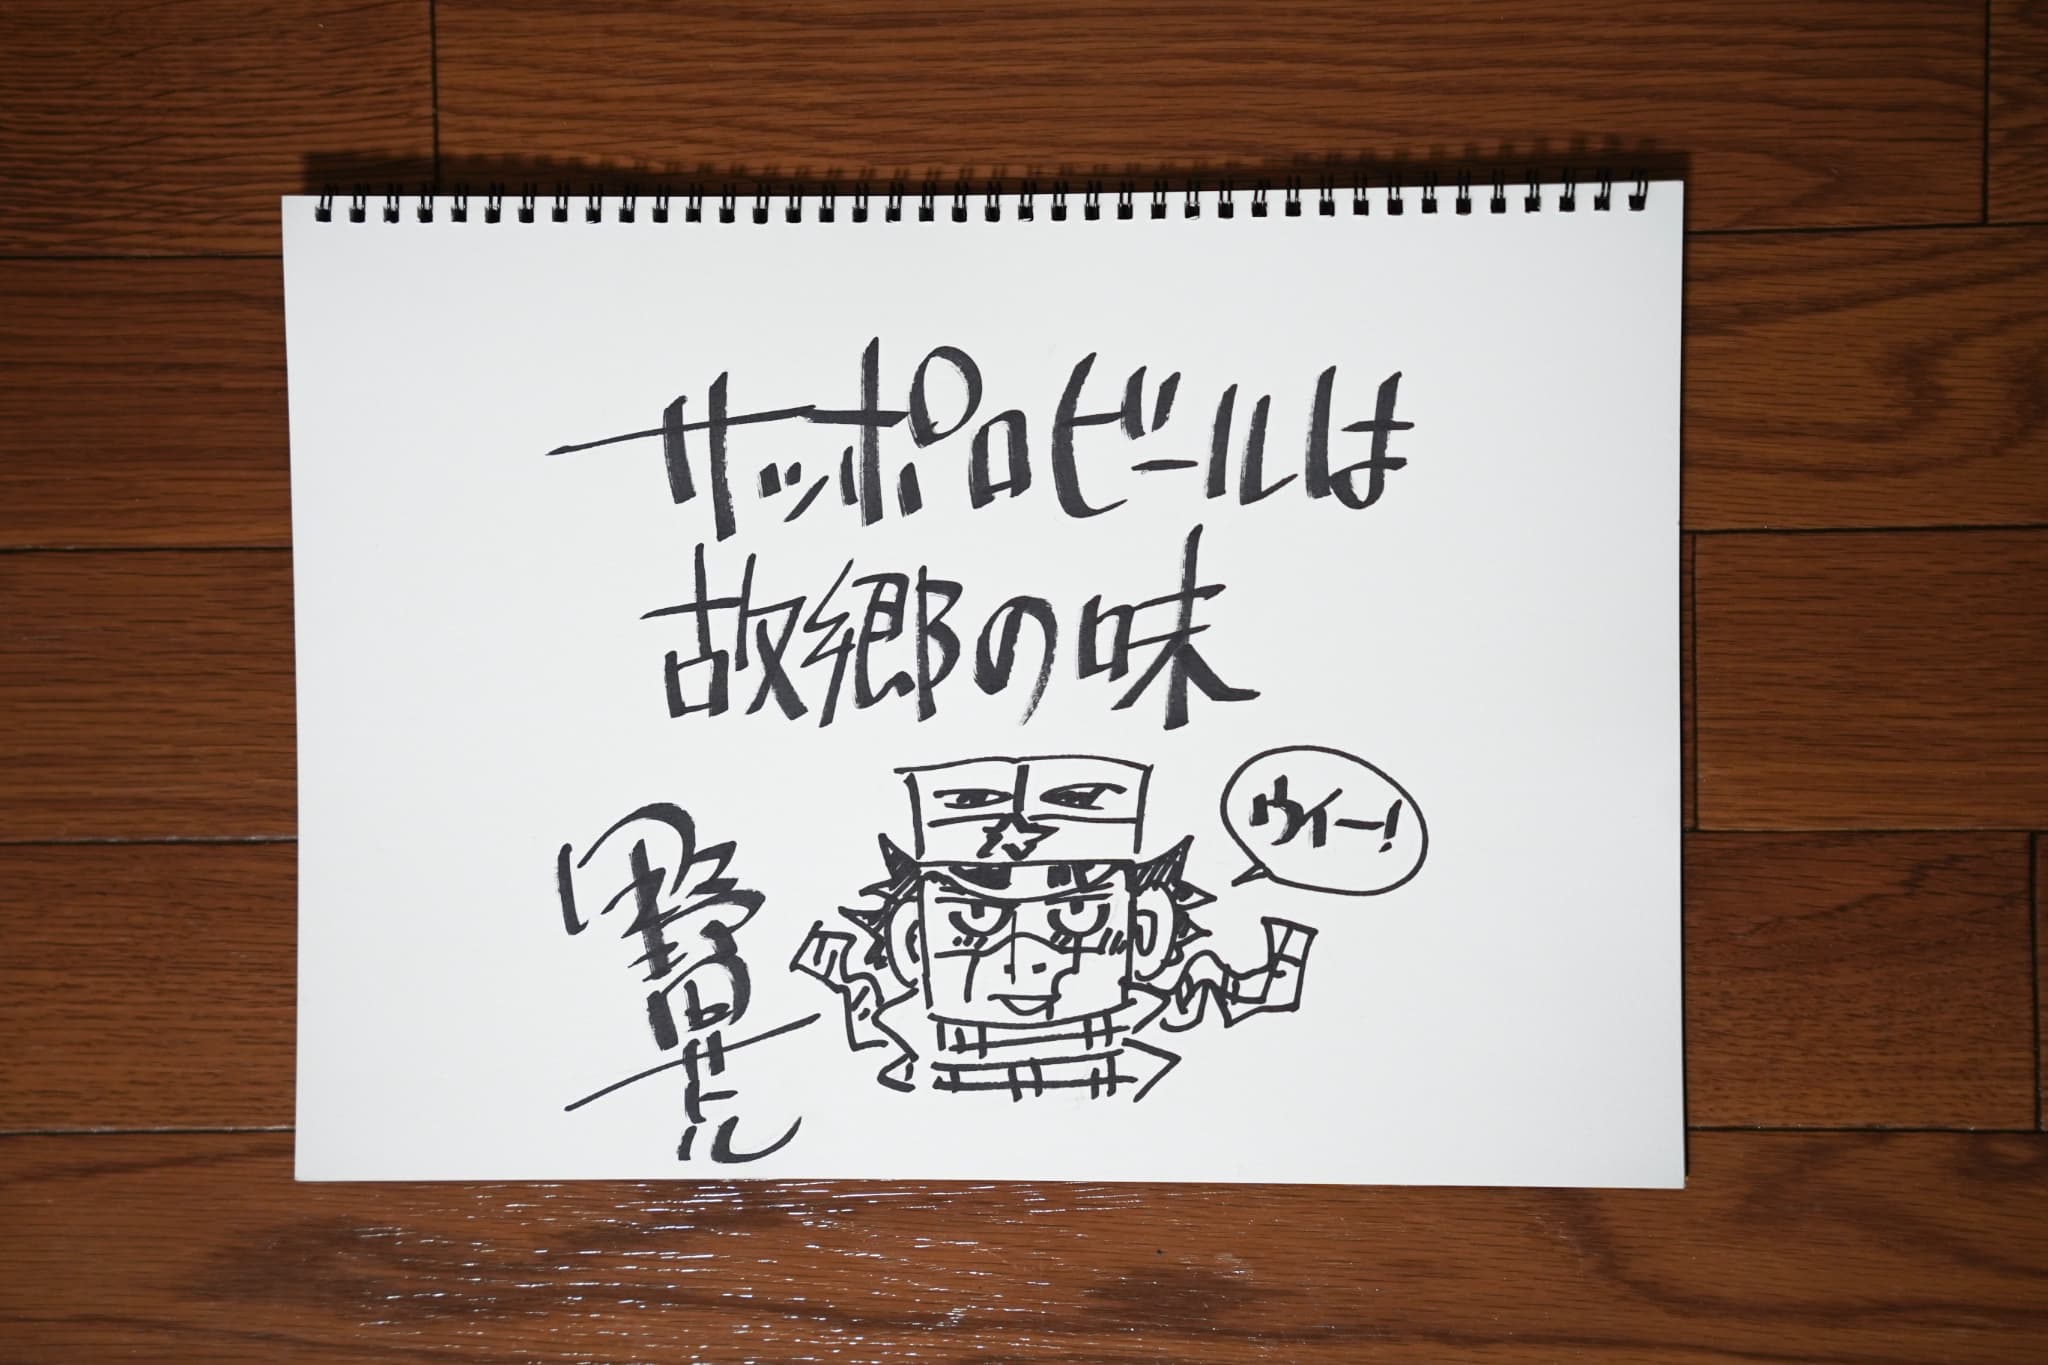 サッポロビールは
故郷の味
ウィー!
野田サトル